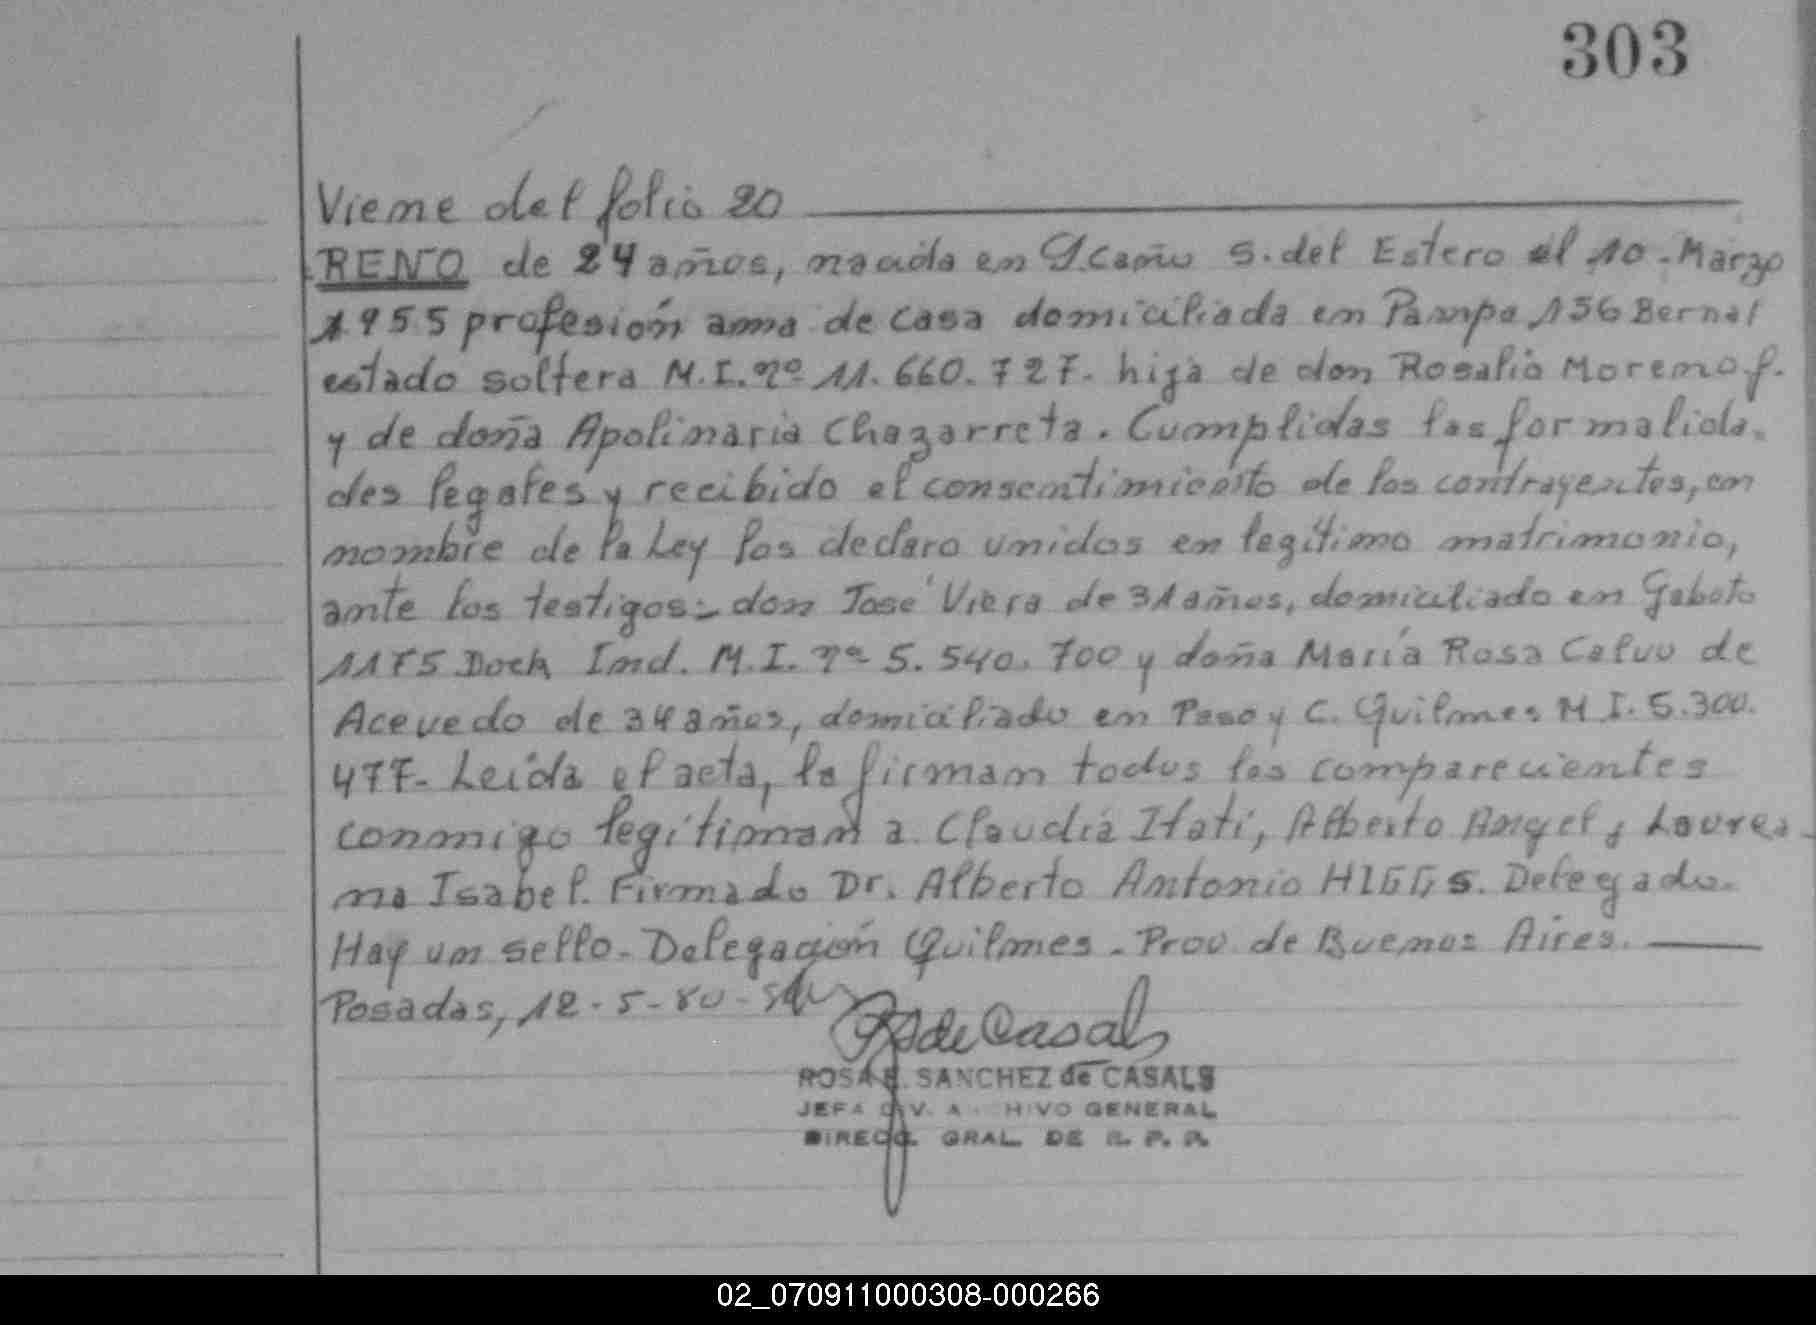 303
Viene del folio 20
RENO de 24 años, nacida en Icaño S. del Estero el 10-Marzo
1955 profesión ama de casa domiciliada en Pampa 156 Bernal
estado soltera M.I. nº 11.660.727. hija de don Rosalio Moreno f.
y de doña Apolinaria Chazarreta. Cumplidas las formalida-
des legales y recibido el consentimiento de los contrayentes, en
nombre de la Ley los declaro unidos en legítimo matrimonio,
ante los testigos:- don José Viera de 31 años, domiciliado en Gaboto
1175 Dock Ind. M.I. nº 5.540.700 y doña María Rosa Calvo de
Acevedo de 34 años, domiciliado en Paso y C. Quilmes M I. 5.300.
477- Leída el acta, la firman todos los comparecientes
conmigo legítiman a Claudia Itatí, Alberto Angel y Laurea-
na Isabel. Firmado Dr. Alberto Antonio HIGGS. Delegado.
Hay un sello- Delegación Quilmes - Prov. de Buenos Aires.
Posadas, 12-5-80-
de Casals
ROSA E. SANCHEZ de CASALS
JEFA DIV. ARCHIVO GENERAL
DIRECC. GRAL. DE R. P. P.
02_070911000308-000266